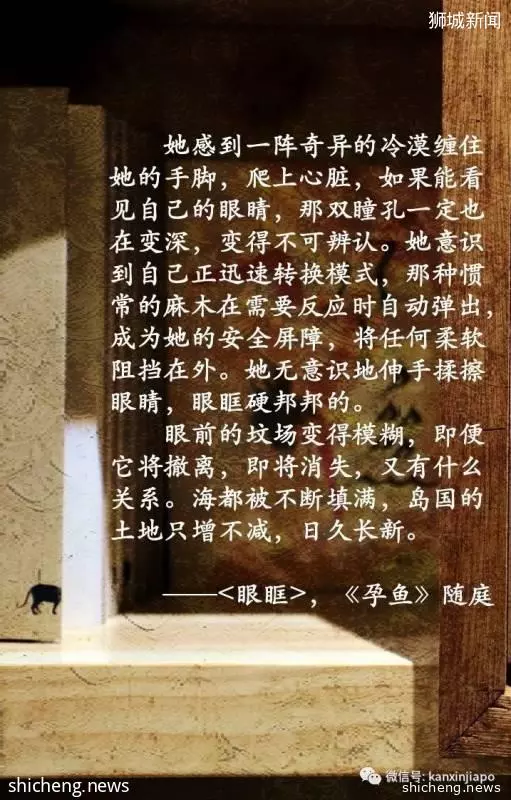 狮城新闻
她感到一阵奇异的冷漠缠住
她的手脚，爬上心脏，如果能看
见自己的眼睛，那双瞳孔一定也
在变深，变得不可辨认。她意识
到自己正迅速转换模式，那种惯
常的麻木在需要反应时自动弹出，
成为她的安全屏障，将任何柔软
阻挡在外。她无意识地伸手揉擦
眼睛，眼眶硬邦邦的。
眼前的坟场变得模糊，即便
它将撤离，即将消失，又有什么
关系。海都被不断填满，岛国的
土地只增不减，日久长新。
——<眼眶>，《孕鱼》随庭
微信号: kanxinjiapo
shicheng.news
shicheng.news